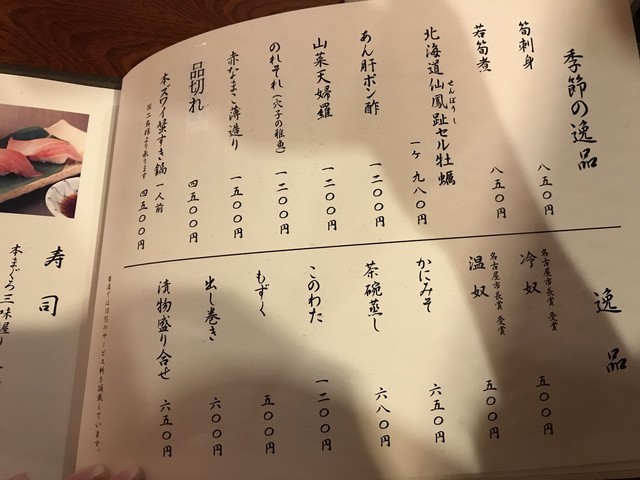 季節の逸品
筍刺身 八五〇円
若筍煮 八五〇円
北海道仙鳳趾セル牡蠣 一ケ 九八〇円
せんぽうし
あん肝ポン酢 一二〇〇円
山菜天婦羅 一二〇〇円
のれそれ(穴子の稚魚) 一二〇〇円
赤なまこ薄造り 一五〇〇円
品切れ 四五〇〇円
本ズワイ蟹すき鍋 一人前 四五〇〇円
※二名様より承ります
逸品
冷奴 名古屋市長賞 受賞 五〇〇円
温奴 名古屋市長賞 受賞 五〇〇円
かにみそ 六五〇円
茶碗蒸し 六八〇円
このわた 一二〇〇円
もずく 五〇〇円
出し巻き 六〇〇円
漬物盛り合せ 六五〇円
寿司
本まぐろ三味屋り